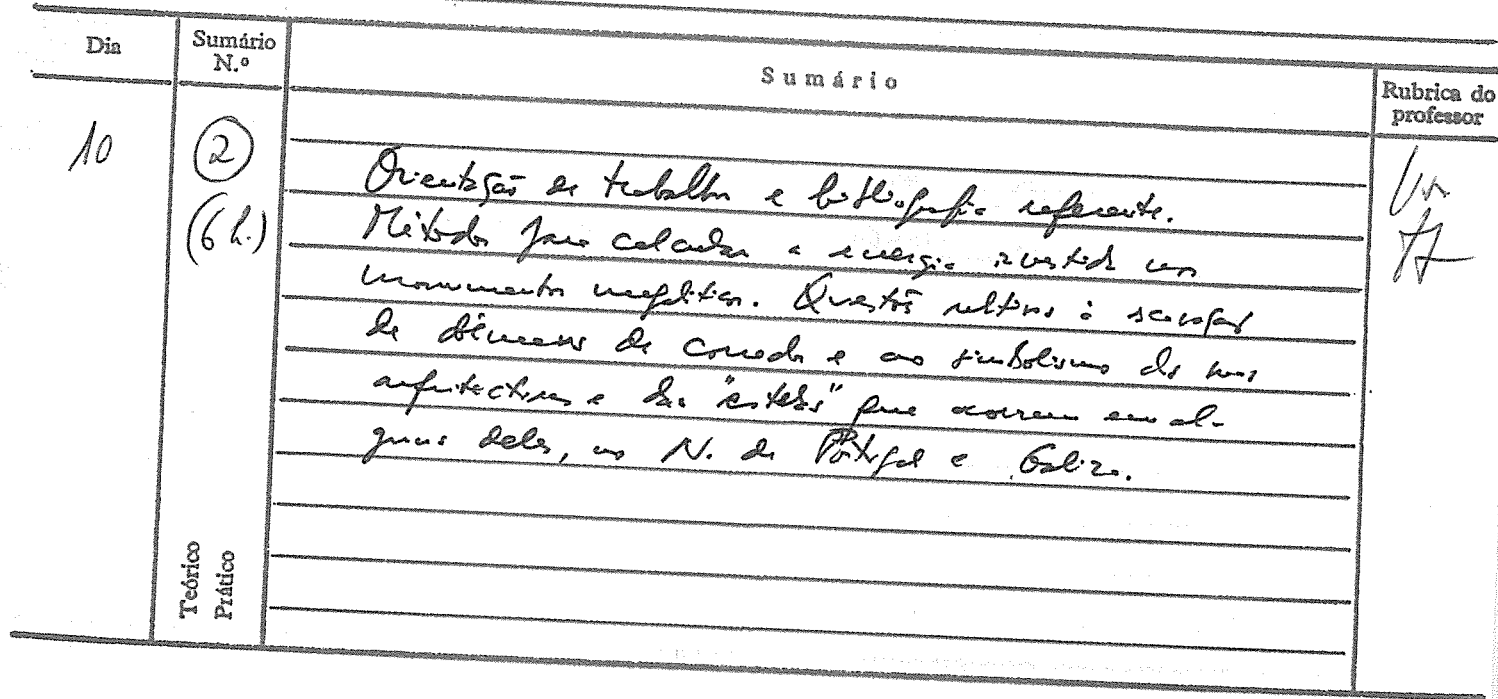 Dia
Sumário
N.º
Sumário
Rubrica do
professor
10
2
(6 h.)
Orientação de trabalho e bibliografia referente.
Método para calcular a energia investida nos
monumentos megalíticos. Questões relativas à escavação
de dólmens de corredor e ao simbolismo das suas
arquitecturas e das "estelas" que ocorrem em al-
guns deles, no N. de Portugal e Galiza.
Teórico
Prático